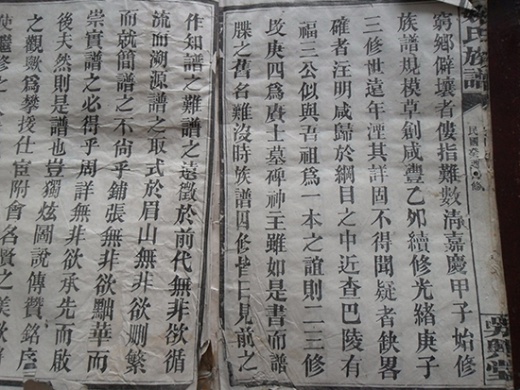 氏族譜
民國
窮鄉僻壤者僂指難數清嘉慶甲子始修
族譜規模草創咸豐乙夘續修光緒庚子
三修世遠年湮其詳固不得聞疑者鈌畧
確者汪明咸歸於綱目之中近查巴陵有
福三公似與吾祖爲一本之誼則二三修
攷庚四爲賡士墓碑神主雖如是書而譜
牒之舊名難沒時族譜四修日見前之
作知譜之難譜之遠徵於前代無非欲循
流而溯源譜之取式於眉山無非欲刪繁
而就簡譜之不尙乎鋪張無非欲黜華而
崇實譜之必得乎周詳無非欲承先而啟
後夫然則是譜也豈獨炫圖說傳贊銘序
之觀歟爲攀援仕宦附會名賢之美歟
繼修之